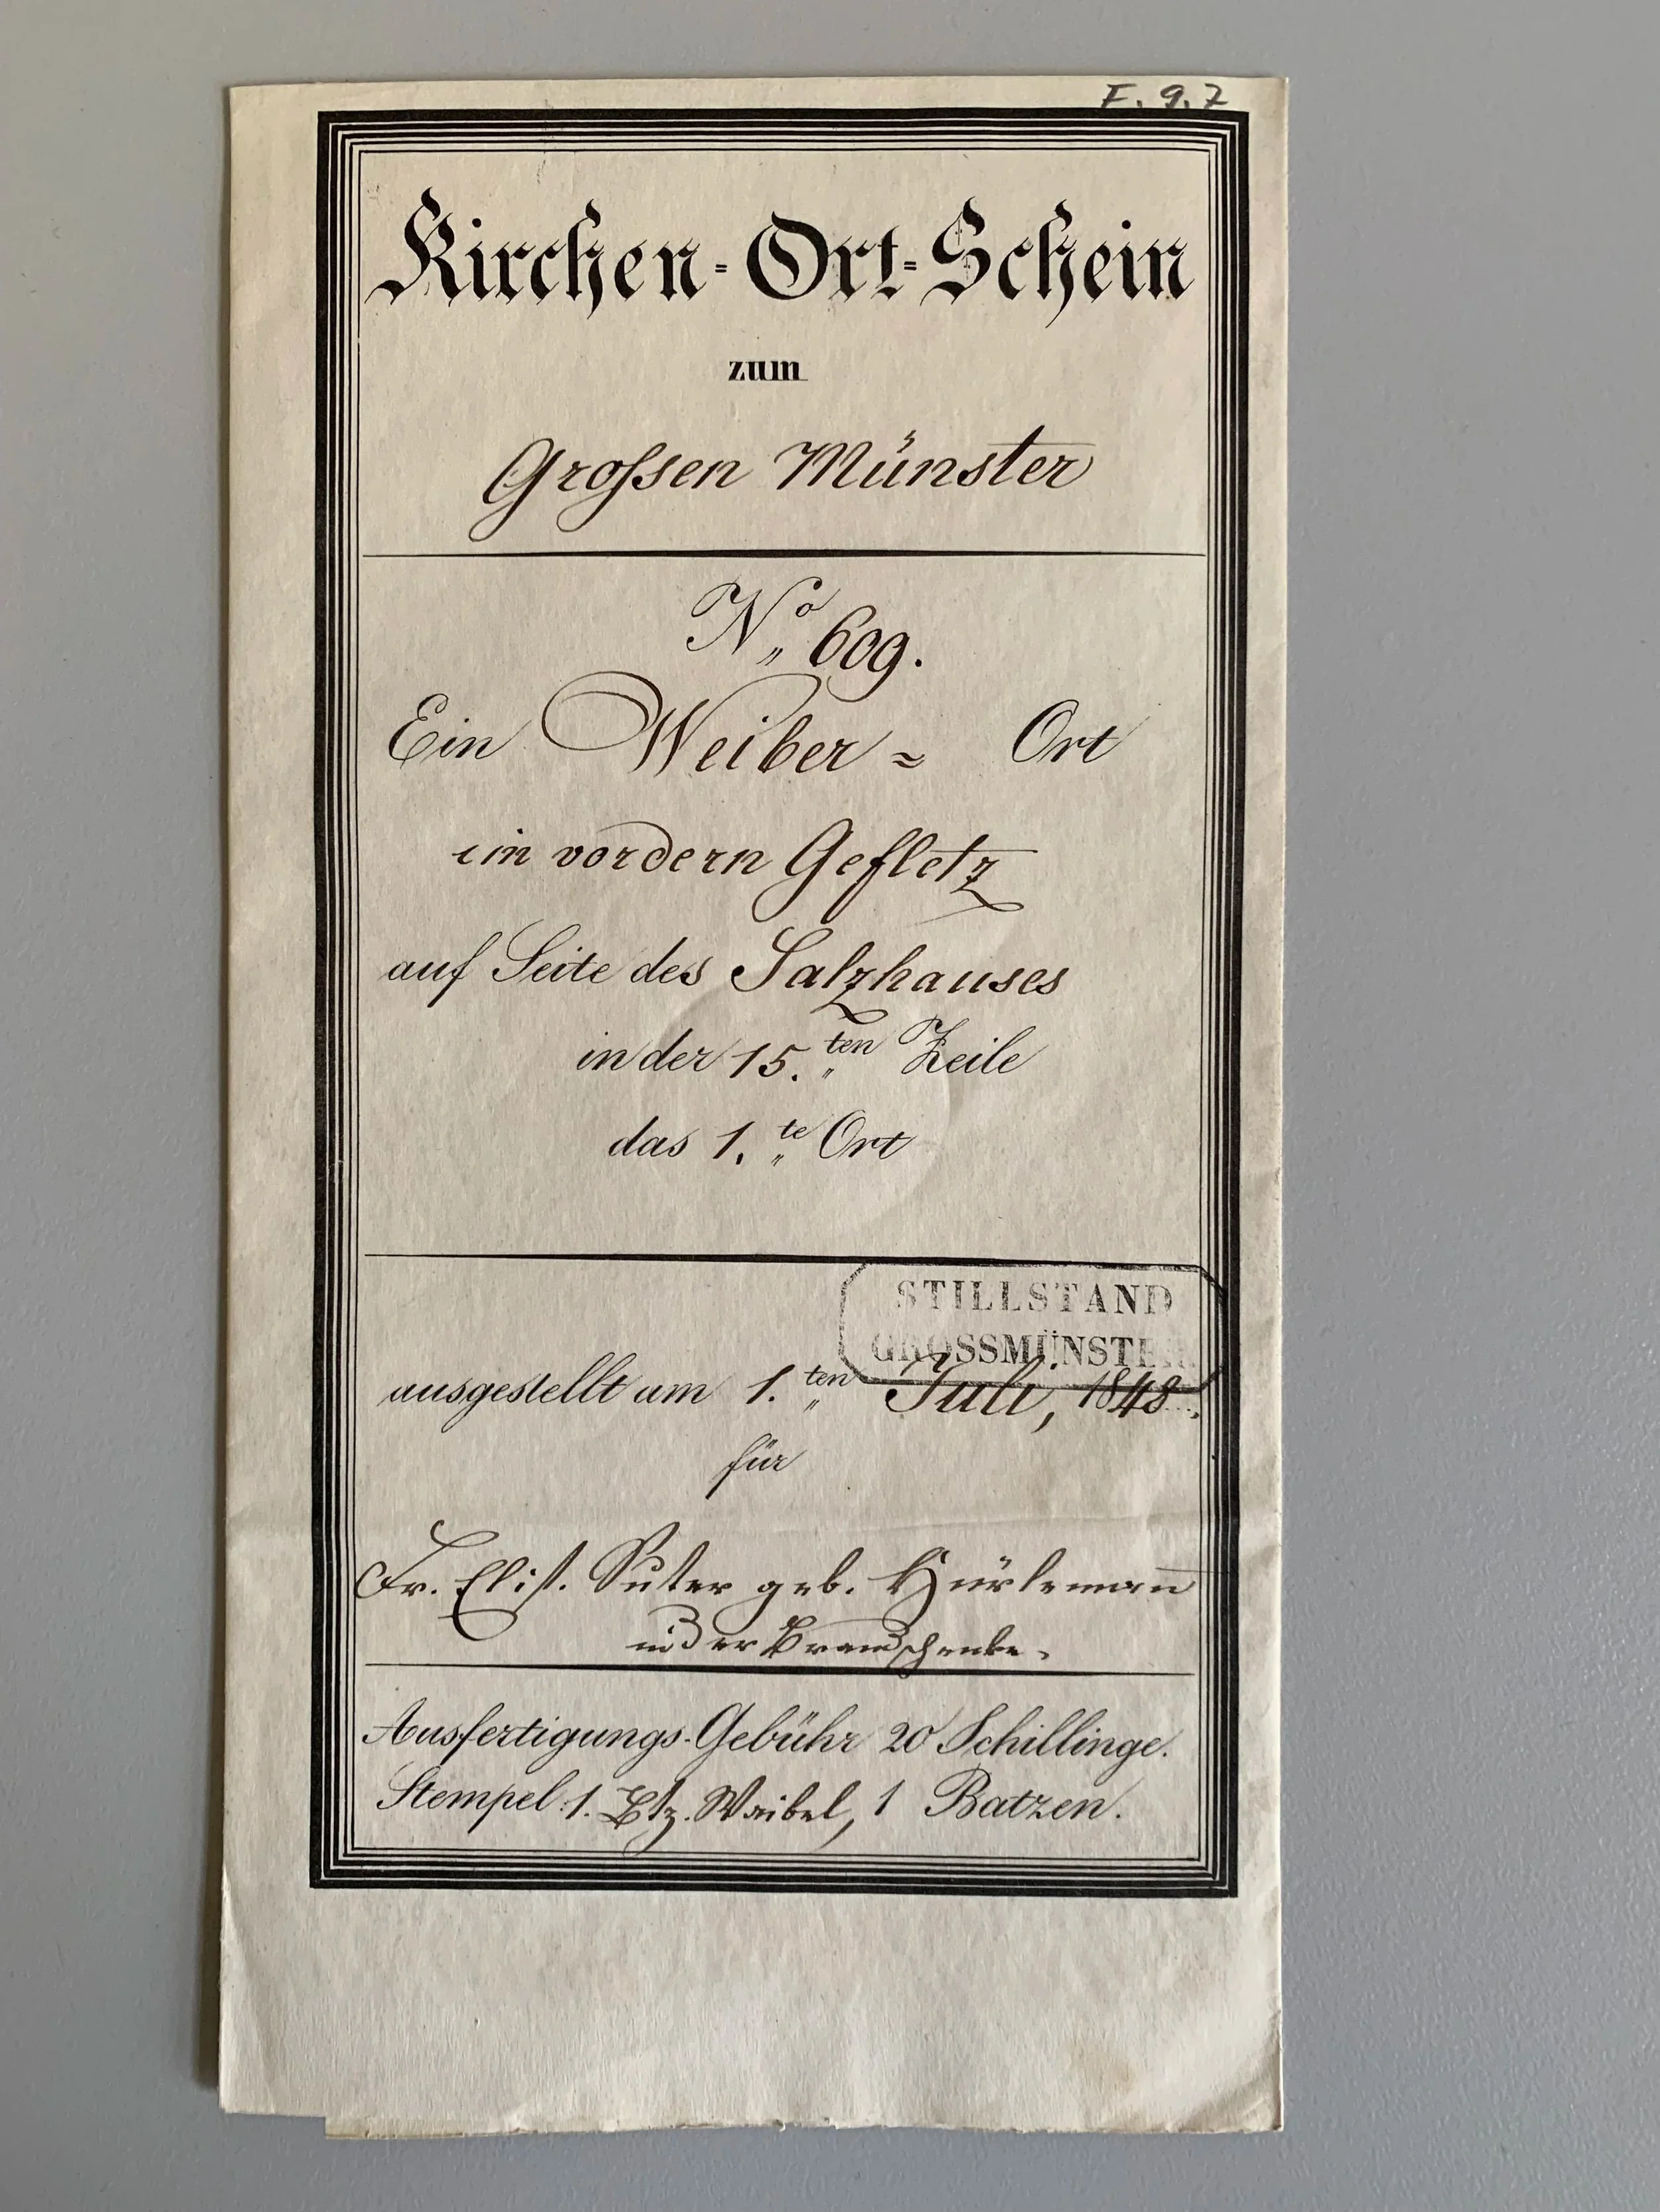 F. 9. 7
Kirchen-Ort-Schein
zum
Grossen Münster
No 609.
Ein Weiber= Ort
im vordern Gefletz
auf Seite des Salzhauses
in der 15.ten Zeile
das 1.te Ort
STILLSTAND
GROSSMÜNSTER
ausgestellt am 1.ten Juli, 1848.
für
Fr. Elis. Suter geb. Hürlemann
in der Brandschenke.
Ausfertigungs-Gebühr 20 Schillinge.
Stempel 1. Btz. Waibel, 1 Batzen.